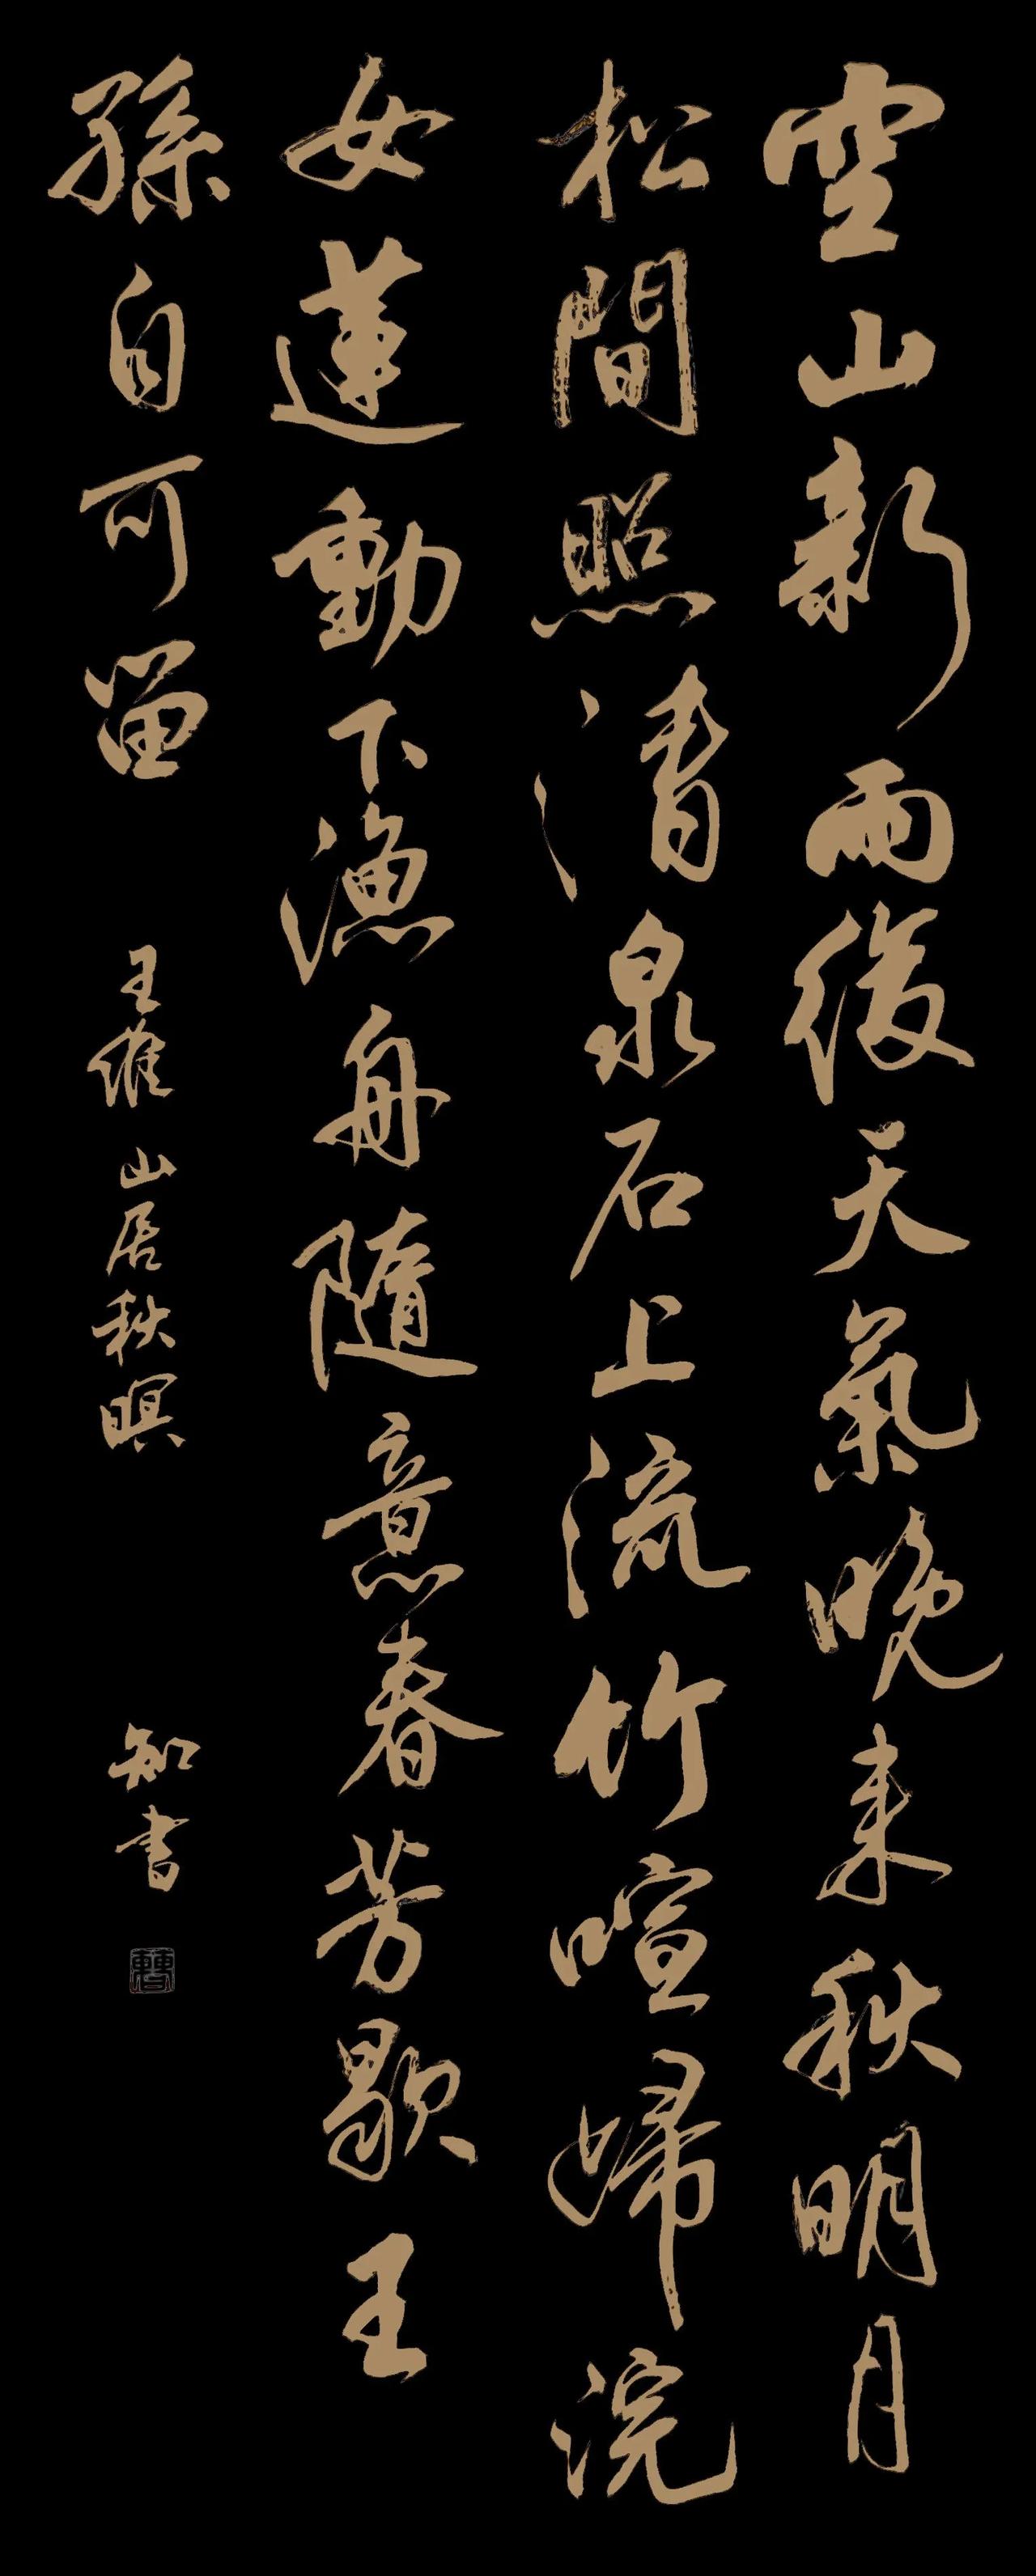 空山新雨後天氣晚来秋明月
松間照清泉石上流竹喧歸浣
女蓮動下漁舟隨意春芳歇王
孫自可留
王維山居秋暝
知書